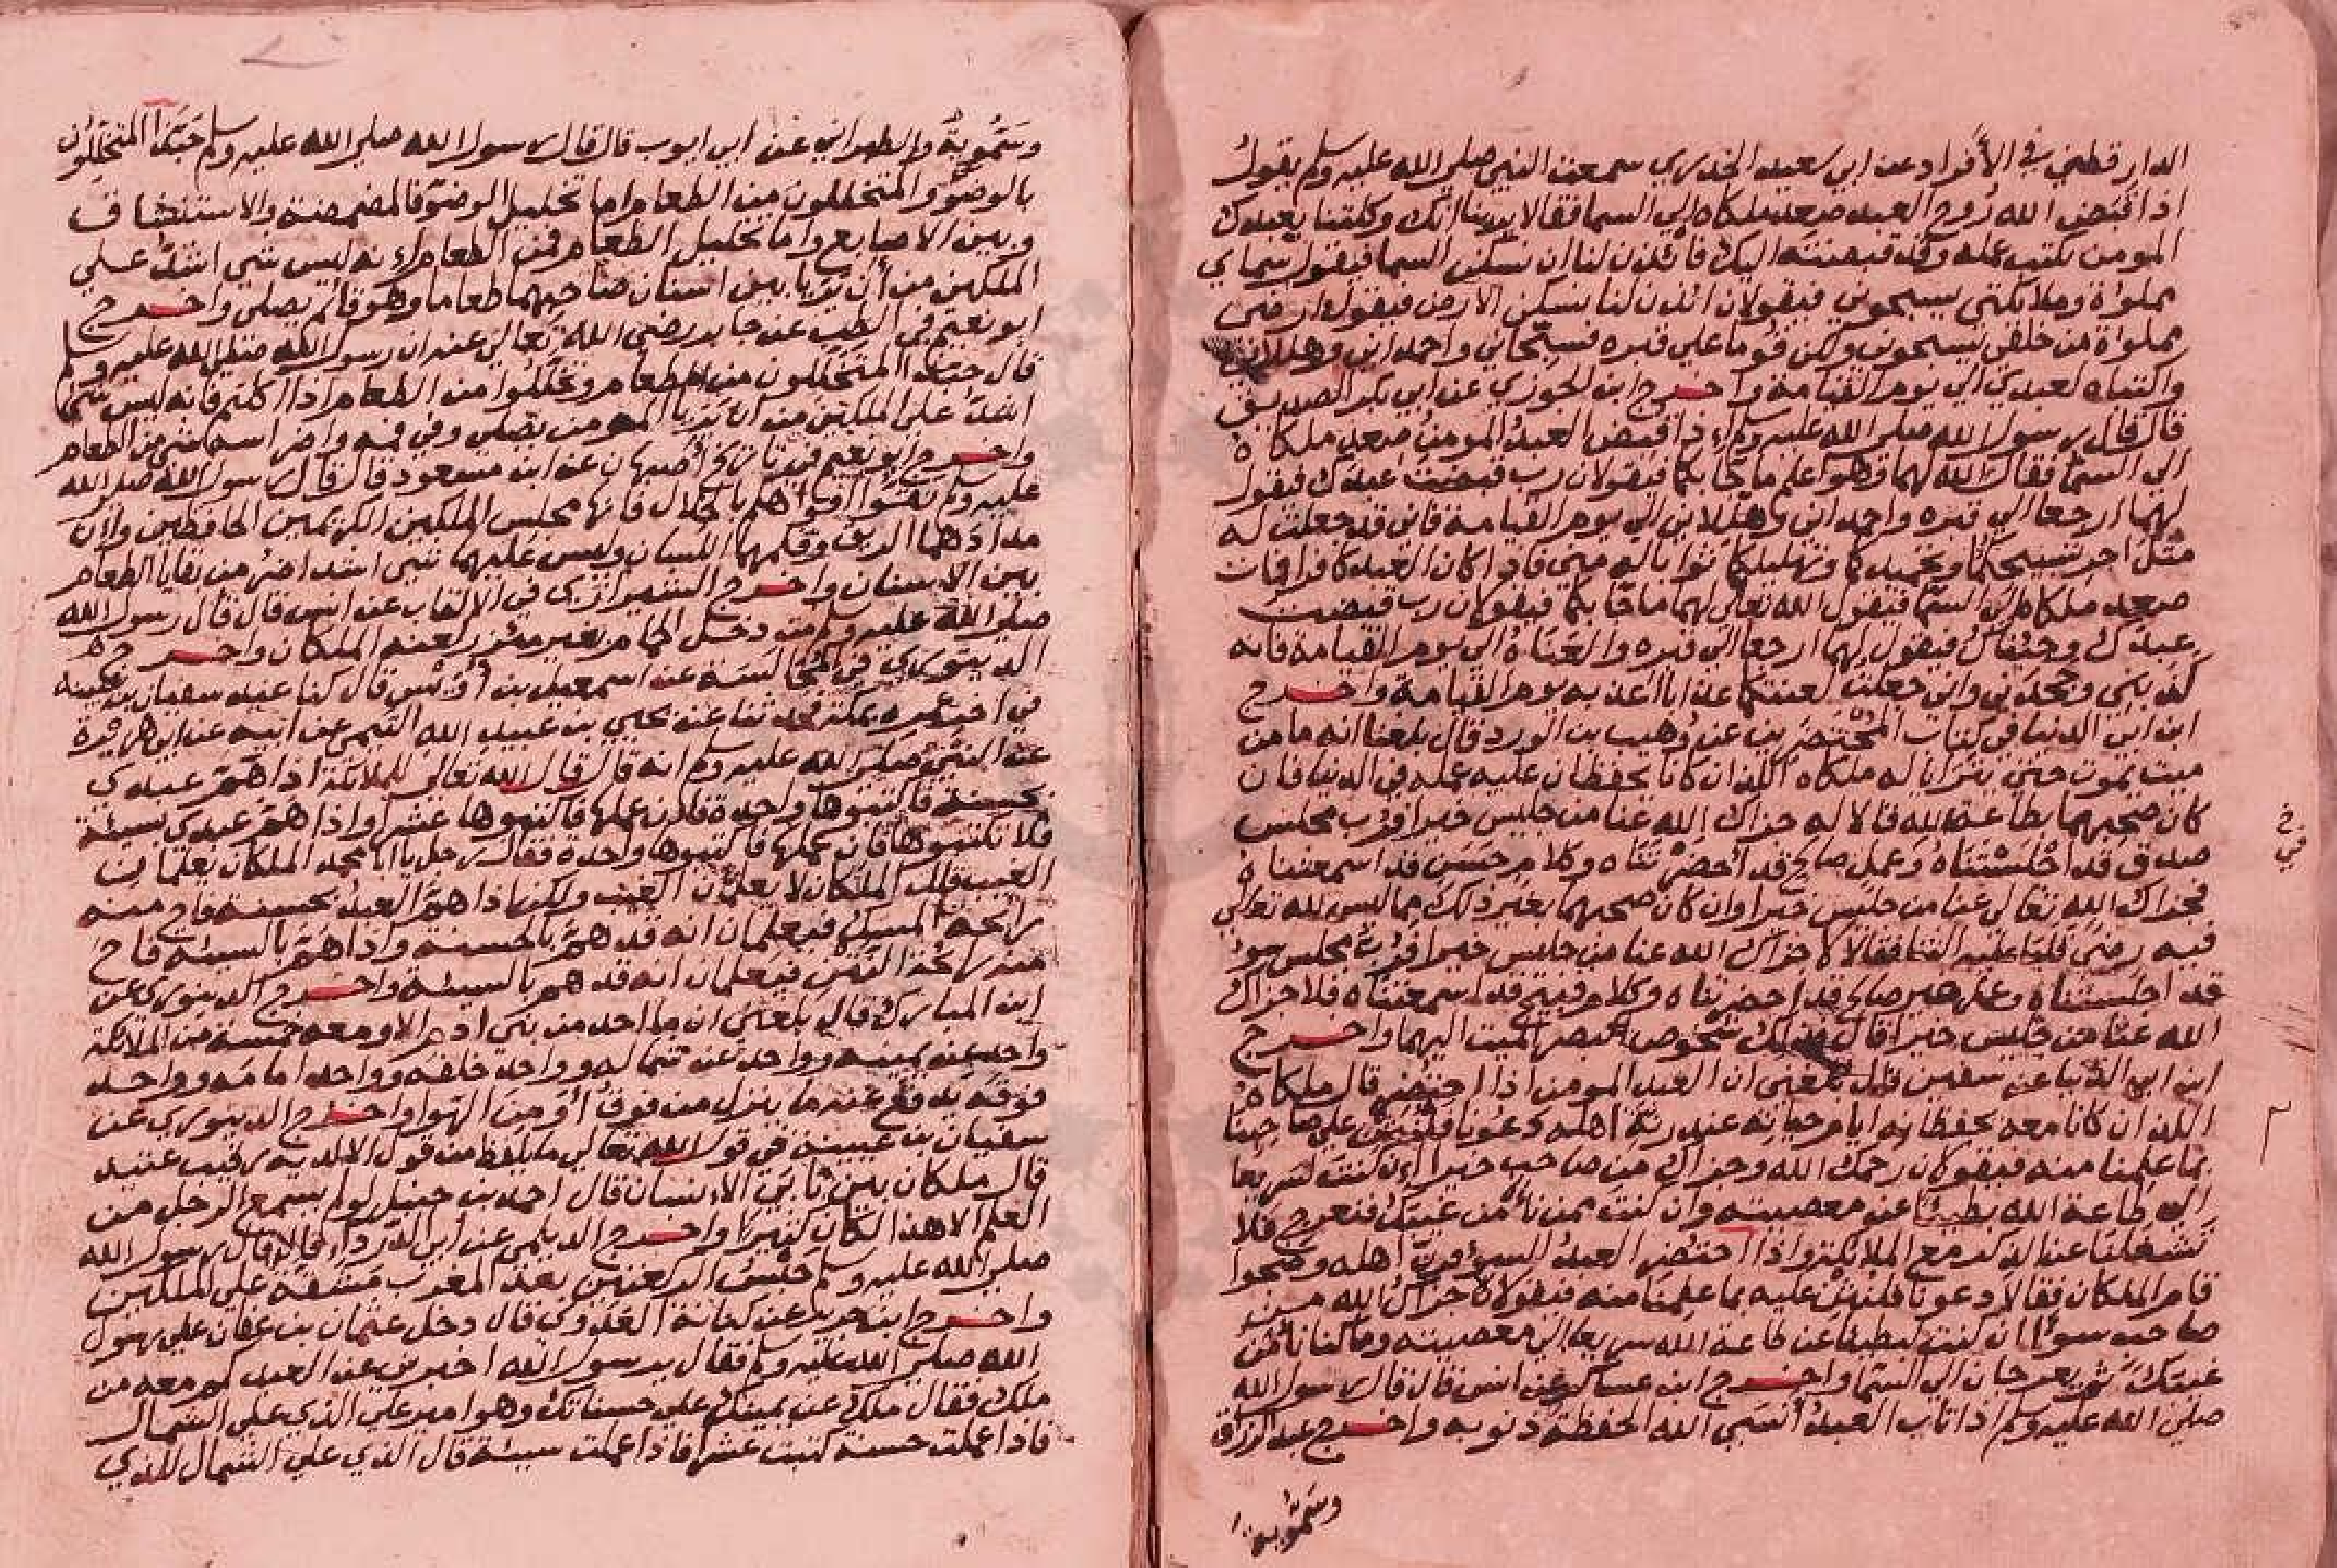 الدارقطني في الأفراد عن ابي سعيد الخدري سمعت النبي صلى الله عليه وسلم يقول
اذا قبض الله روح العبد صعد ملكاه الى السما فقالا ربنا انك وكلتنا بعبدك
المومن نكتب عمله وقد قبضته اليك فائذن لنا ان نسكن السما فيقول سماي
مملوءة وملائكتي يسبحوني فيقولان ائذن لنا نسكن الارض فيقول ارضي
مملوءة من خلقي يسبحوني ولكن قوما على قبره فسبحاني واحمداني وهللاني
واكتباه لعبدي الي يوم القيامة واخرج ابن الجوزي عن ابي بكر الصديق
قال قال رسول الله صلى الله عليه وسلم اذا قبض العبد المومن صعد ملكاه
الى السما فقال الله لهما وهو اعلم ما جا بكما فيقولان رب قبضت عبدك فيقول
لهما ارجعا الي قبره واحمداني وهللاني الي يوم القيامة فاني قد جعلت له
مثل اجر تسبيحكما وتحميدكما وتهليلكما ثوابا له مني فاذا كان العبد كافرا فمات
صعد ملكاه الى السما فيقول الله تعالى لهما ما جا بكما فيقولان رب قبضت
عبدك وجئناك فيقول لهما ارجعا الى قبره والعناه الي يوم القيامة فانه
كذبني وجحدني واني جعلت لعنتكما عذابا اعذبه يوم القيامة واخرج
ابن ابي الدنيا في كتاب المحتضرين عن وهيب بن الورد قال بلغنا انه ما من
ميت يموت حتى يتراايا له ملكاه اللذان كانا يحفظان عليه عمله في الدنيا فان
كان صحبهما بطاعة الله قالا له جزاك الله عنا من جليس خيرا فرب مجلس
صدق قد اجلستناه وعمل صالح قد احضرتناه وكلام حسن قد اسمعتناه
فجزاك الله تعالى عنا من جليس خيرا وان كان صحبهما بغير ذلك مما ليس لله تعالى
فيه رضى قلبا عليه الثنا فقالا لا جزاك الله عنا من جليس خيرا فرب مجلس سوء
قد اجلستناه وعمل غير صالح قد احضرتناه وكلام قبيح قد اسمعتناه فلا جزاك
الله عنا من جليس خيرا قال فذلك شخوص بصر الميت اليهما واخرج
ابن ابي الدنيا عن سفين قال بلغني ان العبد المومن اذا احتضر قال ملكاه
اللذان كانا معه يحفظانه ايام حياته عند رنة اهله دعونا فلنثن على صاحبنا
بما علمنا منه فيقولان رحمك الله وجزاك من صاحب خيرا ان كنت لسريعا
الى طاعة الله بطيئا عن معصيته وان كنت ممن نأمن غيبك فنعرج فلا
تشغلنا عن الذكر مع الملائكة واذا احتضر العبد السوء فرن اهله وضجوا
قام الملكان فقالا دعونا فلنثن عليه بما علمنا منه فيقولان لا جزاك الله من
صاحب سوءا ان كنت لبطيئا عن طاعة الله سريعا الي معصيته وما كنا نامن
غيبك ثم يعرجان الى السما واخرج ابن عساكر عن انس قال قال رسول الله
صلى الله عليه وسلم اذا تاب العبد أنسى الله الحفظة ذنوبه واخرج عبد الرزاق
وسمويه
وسمويه والطبراني عن ابي ايوب قال قال رسول الله صلى الله عليه وسلم حبذا المتخللون
بالوضوء والمتخللون من الطعام اما تخليل الوضوء فالمضمضة والاستنشاق
وبين الاصابع واما تخليل الطعام فمن الطعام انه ليس شي اشد على
الملكين من أن يريا بين اسنان صاحبهما طعاما وهو قائم يصلي واخرج
ابو نعيم في الطب عن جابر رضي الله تعالى عنه ان رسول الله صلى الله عليه وسلم
قال حبذا المتخللون من الطعام وتخللوا من الطعام اذا اكلتم فانه ليس شيئا
اشد على الملكين من ان يريا المومن يصلي وفي فيه واضراسه شي من الطعام
واخرج ابو نعيم في تاريخ أصبهان عن ابن مسعود قال قال رسول الله صلى الله
عليه وسلم نقوا افواهكم بالخلال فانها مجلس الملكين الكريمين الحافظين وان
مدادهما الريق وقلمهما اللسان وليس عليهما شي اشد اضر من بقايا الطعام
بين الاسنان واخرج الشيرازي في الالقاب عن انس قال قال رسول الله
صلى الله عليه وسلم من دخل الحمام بغير مئزر لعنه الملكان واخرج
الدينوري في المجالسة عن اسمعيل بن أويس قال كنا عند سفيان بن عيينة
في اخر عمره بمكة فحدثنا عن يحيى بن عبيد الله التيمي عن ابيه عن ابي هريرة
عن النبي صلى الله عليه وسلم انه قال قال الله تعالى للملائكة اذا هم عبدي
بحسنة فاكتبوها واحدة فان عملها فاكتبوها عشرا واذا هم عبدي بسيئة
فلا تكتبوها فان عملها فاكتبوها واحدة فقال رجل يا ابا محمد الملكان يعلمان
الغيب قال الملكان لا يعلمان الغيب ولكن اذا هم العبد بحسنة فاح منه
رائحة المسك فيعلمان انه قد هم بالحسنة واذا هم بالسيئة فاح
منه رائحة النتن فيعلمان انه قد هم بالسيئة واخرج الدينوري عن
ابن المبارك قال بلغني ان ما احد من بني ادم الا ومعه خمسة من الملائكة
واحد عن يمينه وواحد عن شماله وواحد خلفه وواحد امامه وواحد
فوقه يدفع عنه ما ينزل من فوق أو من الهوا واخرج الدينوري عن
سفيان بن عيينة في قول الله تعالى ما يلفظ من قول الا لديه رقيب عتيد
قال ملكان بين نابي الانسان قال احمد بن حنبل لو لم يسمع الرجل من
العلم الا هذا لكان كثيرا واخرج الديلمي عن أبي الدرداء قال قال رسول الله
صلى الله عليه وسلم حبس الركعتين بعد المغرب مشقة على الملكين
واخرج ابن جرير عن كنانة العدوي قال دخل عثمان بن عفان على رسول
الله صلى الله عليه وسلم فقال يرسول الله اخبرني عن العبد كم معه من
ملك فقال ملك عن يمينك على حسناتك وهو امير على الذي على الشمال
فاذا عملت حسنة كتبت عشرا فاذا عملت سيئة قال الذي على الشمال للذي